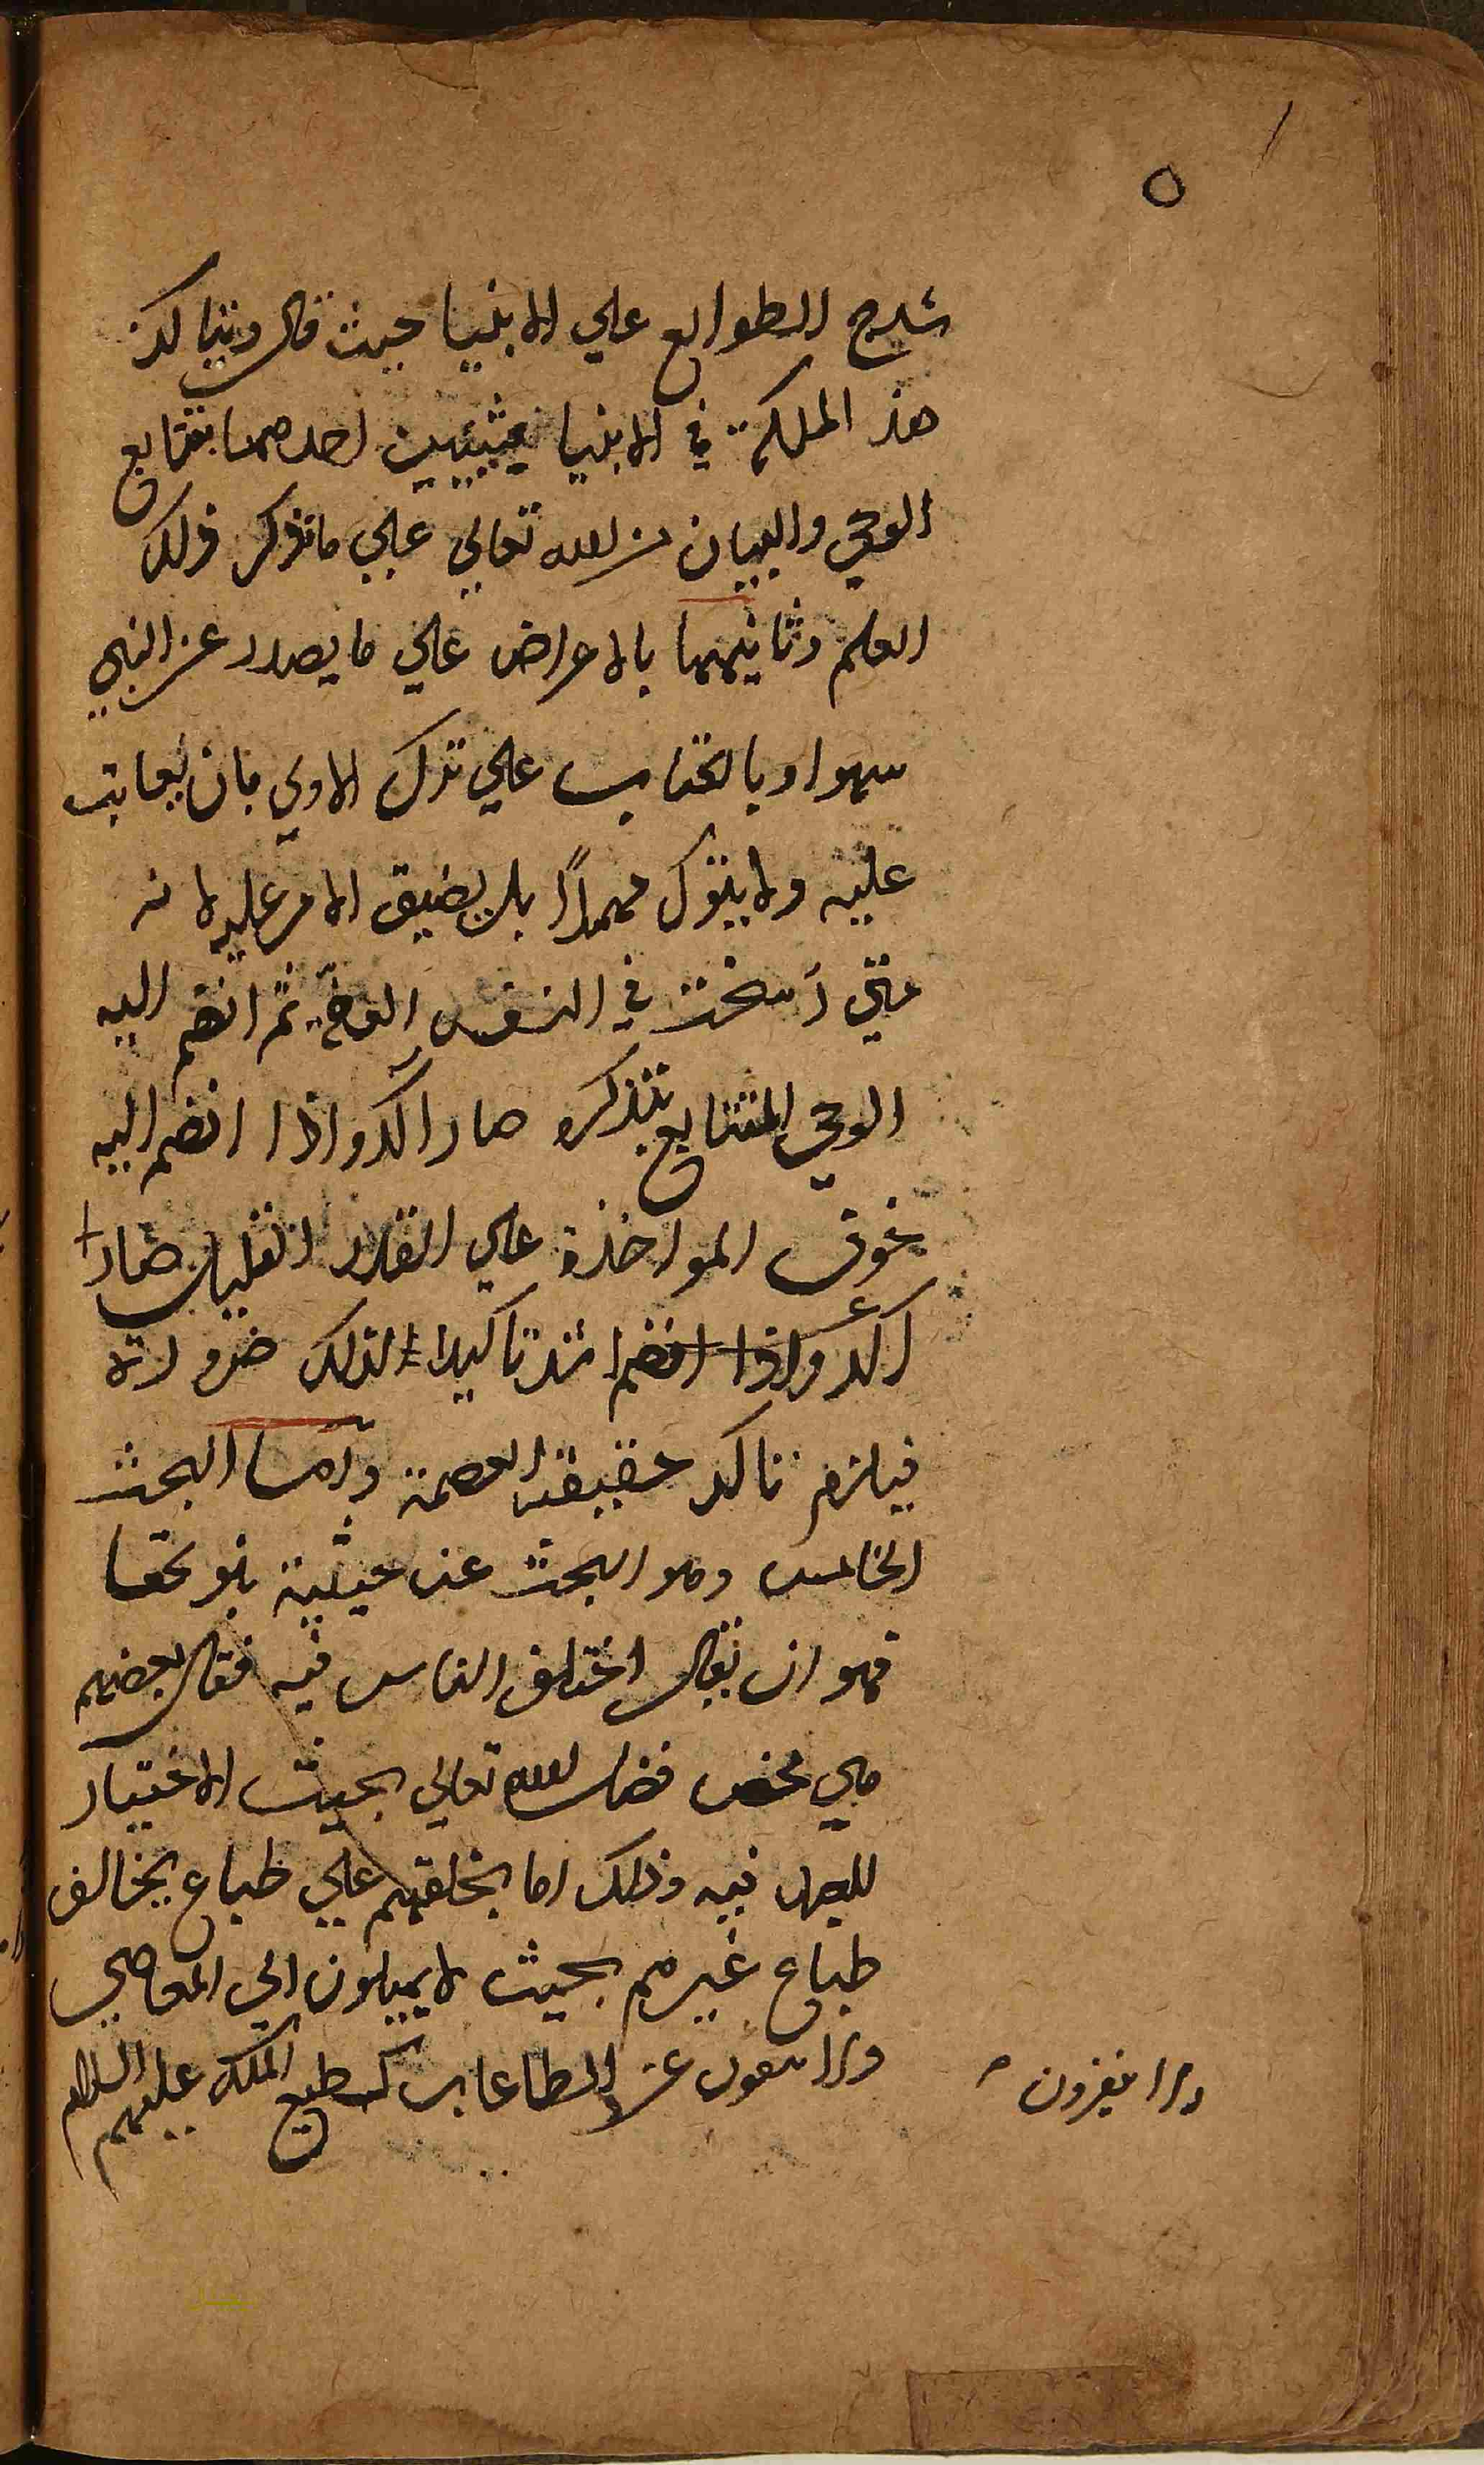 ٥
شرح الطوالع علي الانبيا حيث قال ويتاكد
هذ الملكة في الانبيا بشيئين احدهما بتتابع
الوحي والبيان من الله تعالي علي ما تذكر ذلك
العلم وثانيهما بالاعراض علي ما يصدر عن النبي
سهوا وبالعتاب علي ترك الاولي بان يعاتب
عليه ولا يترك مهملاً بل يضيق الامر عليه لانه
متي رسخت في النفس العفة ثم انضم اليه
الوحي المتتابع بتذكره صار اكد واذا انضم اليه
خوف المواخذة علي القدر القليل صار
اكد واذا انضم اشد تاكيدا لذلك ضرورة
فيلزم تاكد حقيقة العصمة واما البحث
الخامس وهو البحث عن حيثية بلوغها
فهو ان يقال اختلف الناس فيه فقال بعضهم
هي محض فضل الله تعالي بحيث لا اختيار
للعبد فيه وذلك اما بخلقهم علي طباع يخالف
طباع غيرهم بحيث لا يميلون الي المعاصي
ولا عن الطاعات كطبع الملكة عليهم السلام
ولا ينفرون